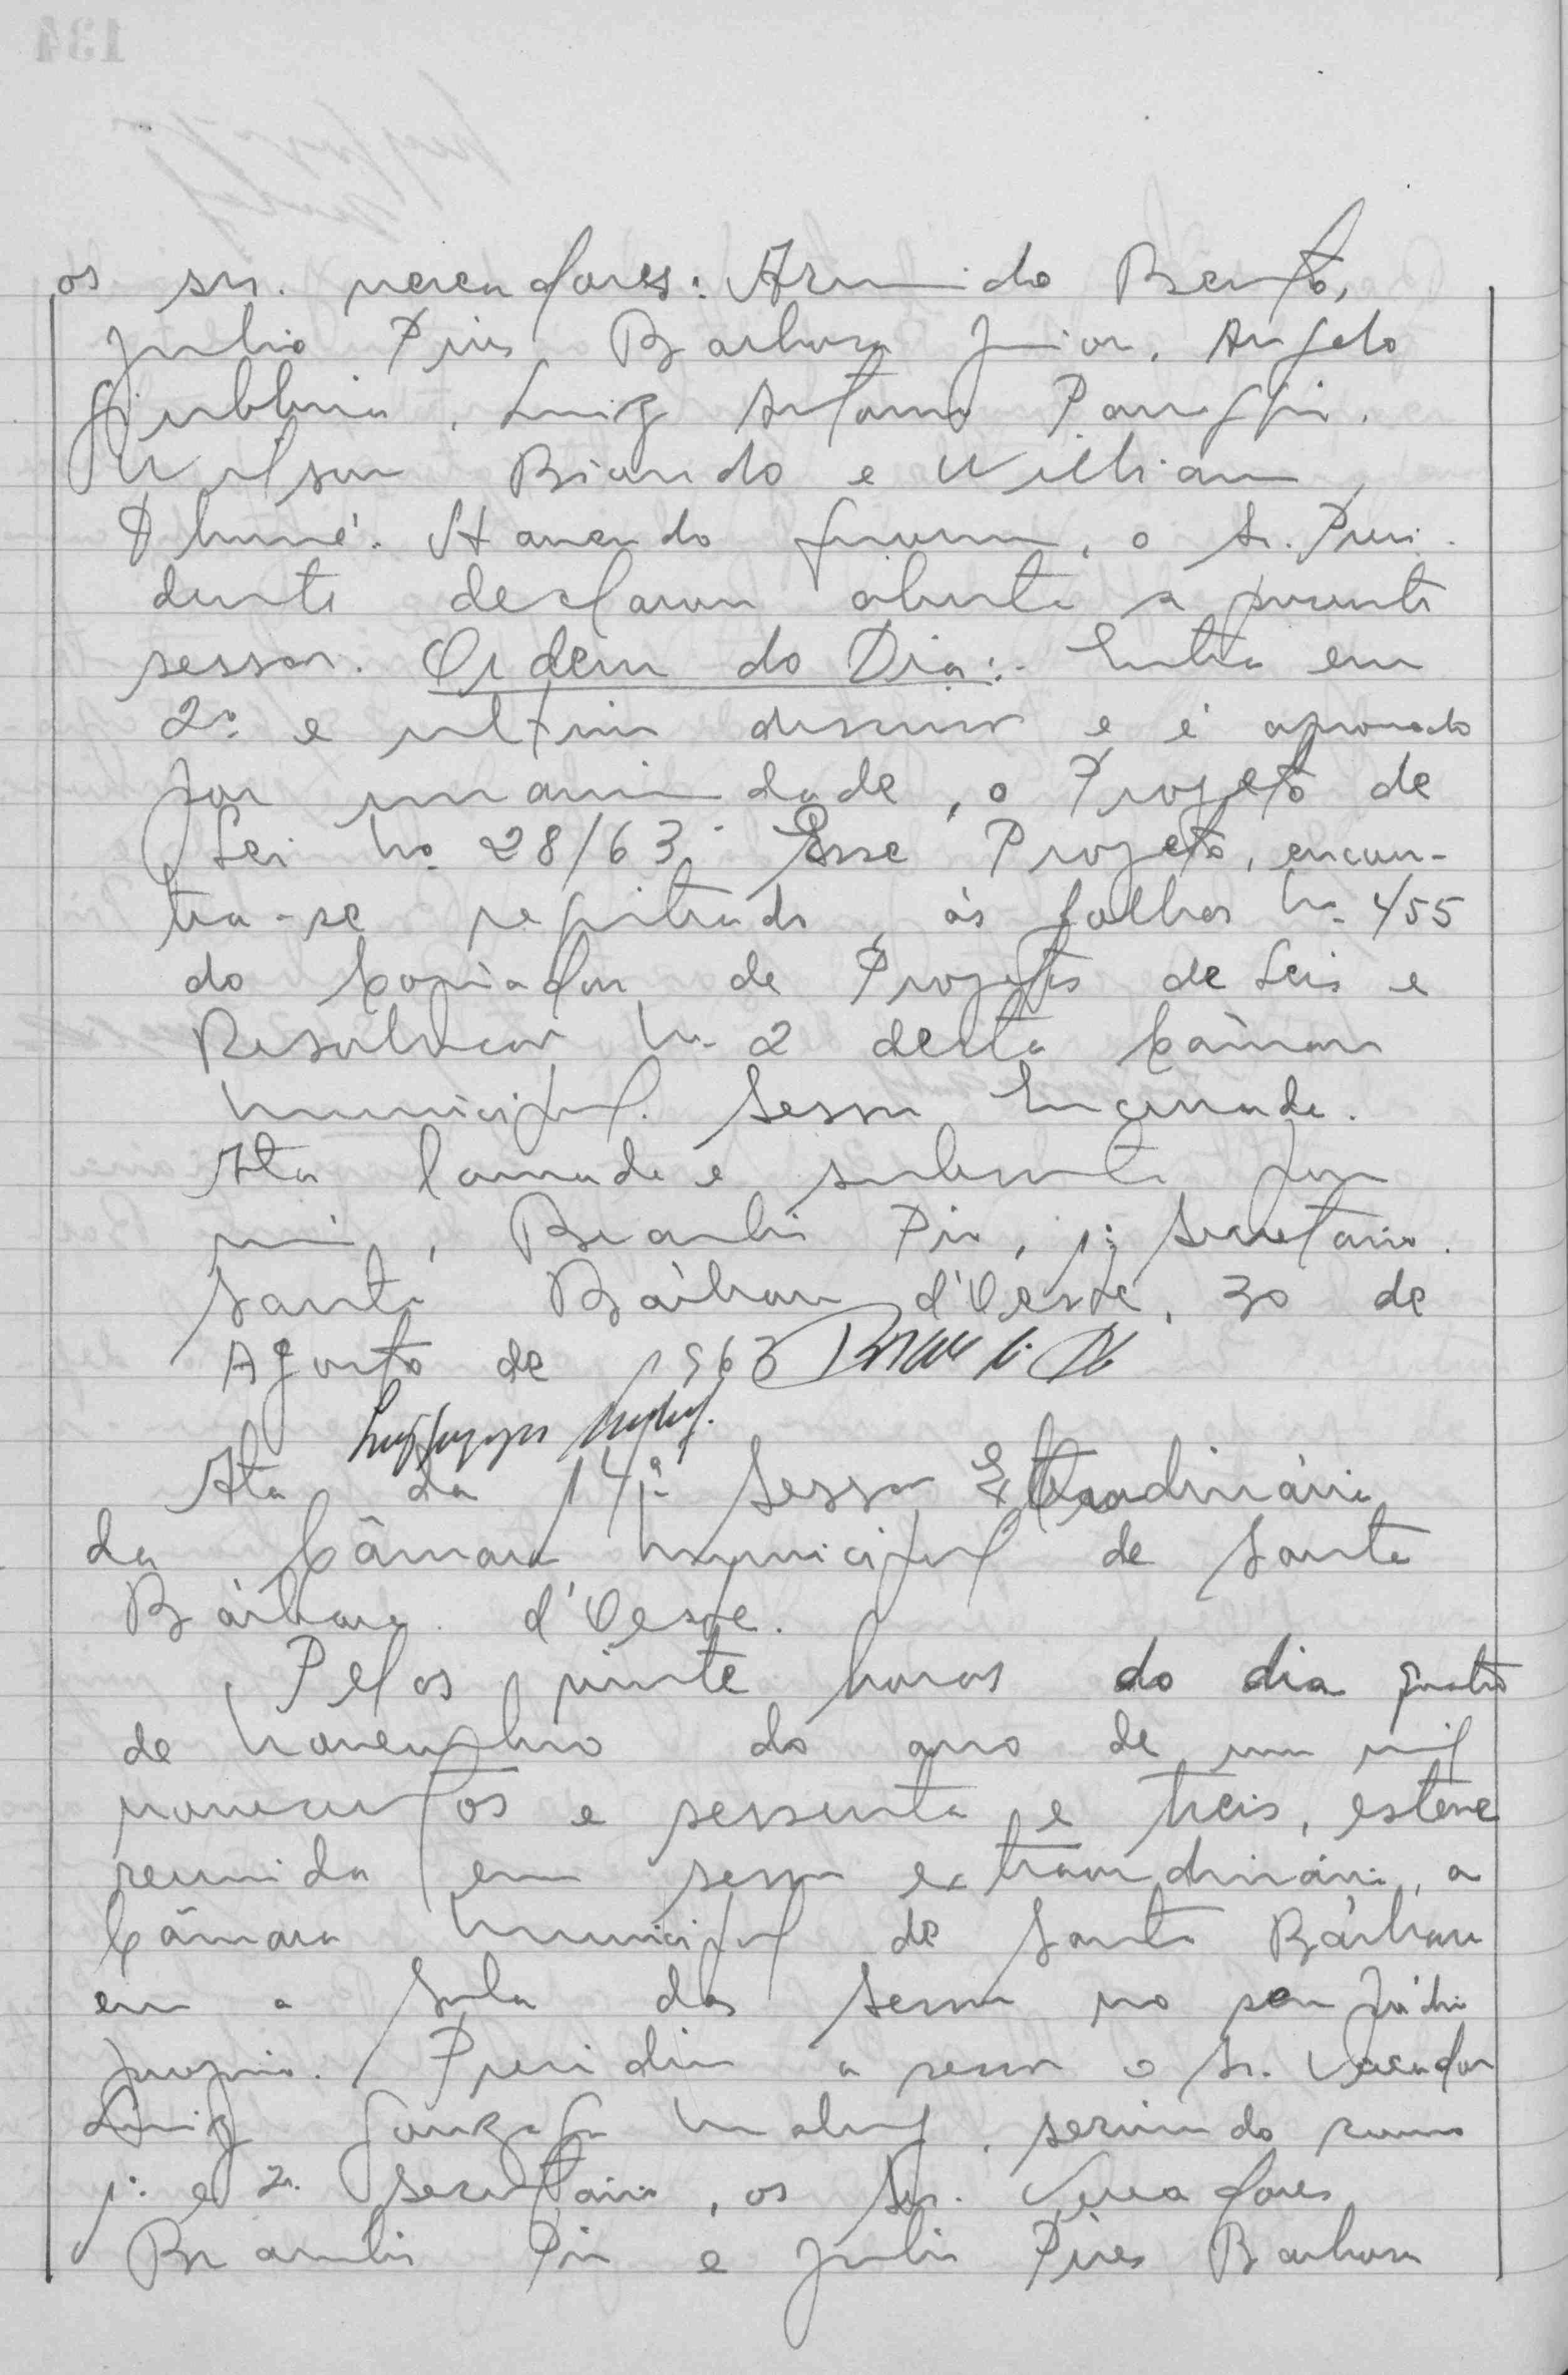 os srs. vereadores: Armindo Bento,
Julio Pires Barbosa Junior, Angelo
Giubbina, Luiz Antonio Panaggio,
Wilson Biondo e William
Dhumé. Havendo quorum, o Sr. Presi-
dente declarou aberta a presente
sessão. Ordem do Dia:- Entra em
2a. e ultima discussão e é aprovado
por unanimidade, o Projeto de
Lei no. 28/63. Esse Projeto, encon-
tra-se registrado, às folhas no. 455
do Copiador de Projetos de Leis e
Resolucao no. 2 desta Câmara
Municipal. Sessão Encerrada.
Ata lavrada e subscrita por
mim, Brasilio Pio, 1º Secretario.
Santa Bárbara d'Oeste, 30 de
Agosto de 1963
Ata da 14ª Sessão Extraordinária
da Câmara Municipal de Santa
Bárbara d'Oeste.
Pelas vinte horas do dia quatro
de novembro do ano de um mil
novecentos e sessenta e treis, esteve
reunida em sessão extraordinária, a
Câmara Municipal de Santa Bárbara
em a Sala das Sessões no seu prédio
proprio. Presidiu a sessão o Sr. Vereador
Luiz Gonzaga Maluf, servindo como
1º e 2º Secretario, os Srs. Vereadores
Brasilio Pio e Julio Pires Barbosa